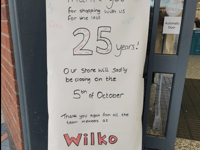 Thank you
for shopping with us
for the last
25 years!
Our store will sadly
be closing on the
5th of October
Thank you again from all
the team members at
Wilko